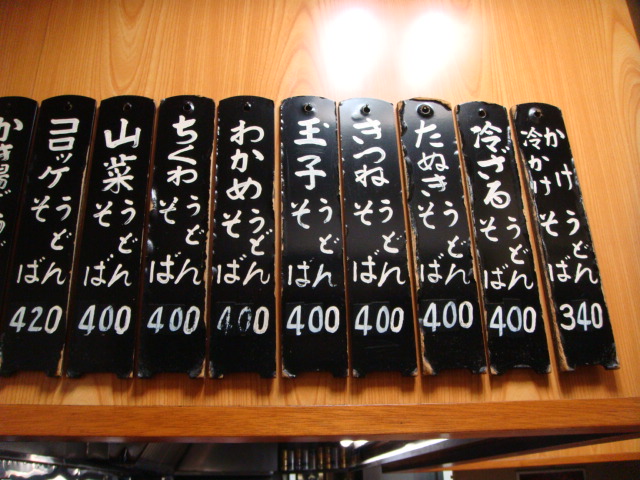 かけ
冷かけ
うどん
そば
340
冷ざる
うどん
そば
400
たぬき
うどん
そば
400
きつね
うどん
そば
400
玉子
うどん
そば
400
わかめ
うどん
そば
400
ちくわ
うどん
そば
400
山菜
うどん
そば
400
コロッケ
うどん
そば
420
かき揚げ